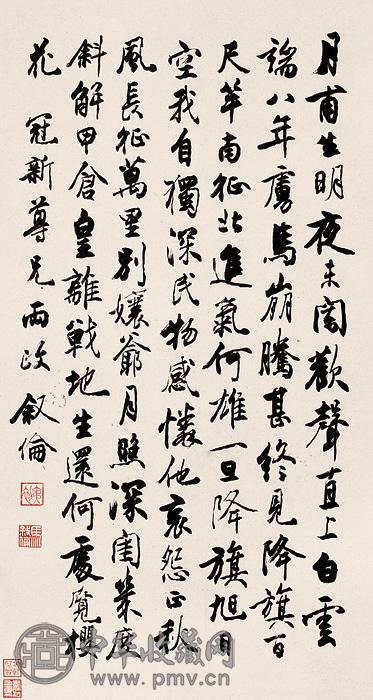 月甫生明夜未闌歡聲直上白雲
端八年虜馬崩騰甚終見降旗百
尺竿南征北進氣何雄一旦降旗旭日
空我自獨深民物感憐他哀怨正秋
風長征萬里別孃爺月照深閨幾度
斜解甲倉皇離戰地生還何處覓櫻
花 冠新尊兄兩政 叙倫
中华收藏网
www.pmv.cn